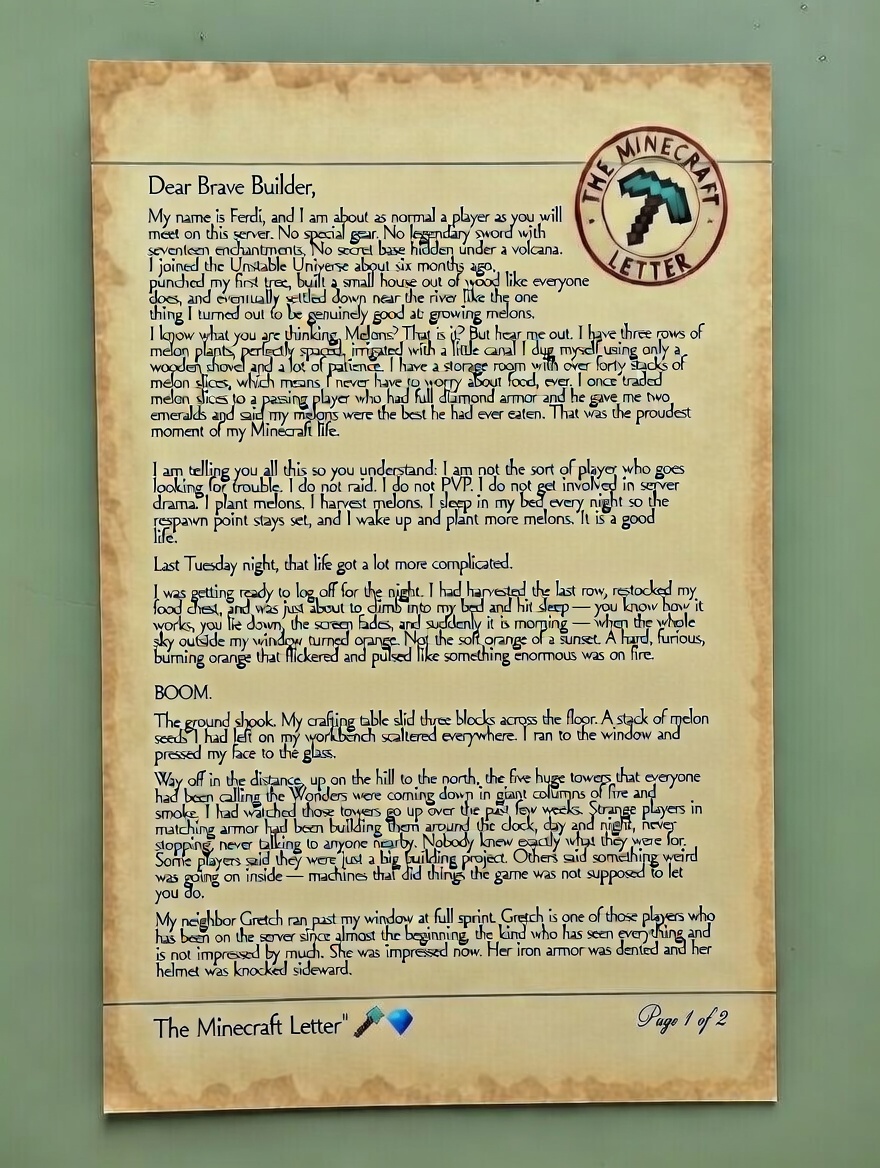 THE MINECRAFT
LETTER
Dear Brave Builder,
My name is Ferdi, and I am about as normal a player as you will
meet on this server. No special gear. No legendary sword with
seventeen enchantments. No secret base hidden under a volcana.
I joined the Unstable Universe about six months ago,
punched my first tree, built a small house out of wood like everyone
does, and eventually settled down near the river like the one
thing I turned out to be genuinely good at: growing melons.
I know what you are thinking. Melons? That is it? But hear me out. I have three rows of
melon plants, perfectly spaced, irrigated with a little canal I dug myself using only a
wooden shovel and a lot of patience. I have a storage room with over forty stacks of
melon slices, which means I never have to worry about food, ever. I once traded
melon slices to a passing player who had full diamond armor and he gave me two
emeralds and said my melons were the best he had ever eaten. That was the proudest
moment of my Minecraft life.
I am telling you all this so you understand: I am not the sort of player who goes
looking for trouble. I do not raid. I do not PVP. I do not get involved in server
drama. I plant melons. I harvest melons. I sleep in my bed every night so the
respawn point stays set, and I wake up and plant more melons. It is a good
life.
Last Tuesday night, that life got a lot more complicated.
I was getting ready to log off for the night. I had harvested the last row, restocked my
food chest, and was just about to climb into my bed and hit sleep — you know how it
works, you lie down, the screen fades, and suddenly it is morning — when the whole
sky outside my window turned orange. Not the soft orange of a sunset. A hard, furious,
burning orange that flickered and pulsed like something enormous was on fire.
BOOM.
The ground shook. My crafting table slid three blocks across the floor. A stack of melon
seeds I had left on my workbench scattered everywhere. I ran to the window and
pressed my face to the glass.
Way off in the distance, up on the hill to the north, the five huge towers that everyone
had been calling the Wonders were coming down in giant columns of fire and
smoke. I had watched those towers go up over the past few weeks. Strange players in
matching armor had been building them around the clock, day and night, never
stopping, never talking to anyone nearby. Nobody knew exactly what they were for.
Some players said they were just a big building project. Others said something weird
was going on inside — machines that did things the game was not supposed to let
you do.
My neighbor Gretch ran past my window at full sprint. Gretch is one of those players who
has been on the server since almost the beginning, the kind who has seen everything and
is not impressed by much. She was impressed now. Her iron armor was dented and her
helmet was knocked sideward.
The Minecraft Letter"
Page 1 of 2